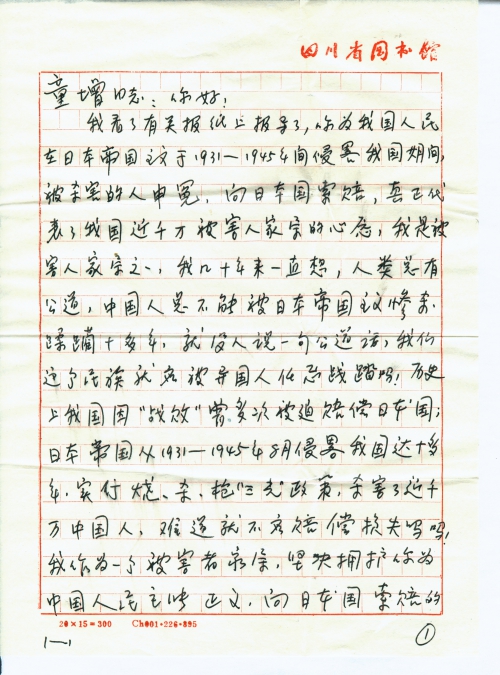 四川省图书馆
童增同志：你好！
我看了有关报纸上报导了，你为我国人民
在日本帝国主义于1931—1945年间侵畧我国期间，
被杀害的人申冤，向日本国索赔，真正代
表了我国近千万被害人家宗的心愿，我是被
害人家宗之一，我几十年来一直想，人类总有
公道，中国人总不能被日本帝国主义惨杀
蹂躏十多年，就没人说一句公道话，我们
这个民族就应被异国人任意践踏吗！历史
上我国因“战败”曾多次被迫赔偿日本国；
日本帝国从1931—1945年8月侵畧我国达十多
年，实行烧、杀、抢“三光”政策，杀害了近千
万中国人，难道就不应赔偿损失吗，
我作为一个被害者家保，坚决拥护你为
中国人民主张正义，向日本国索赔的
20×15=300 Ch001·226·895
1—1
①